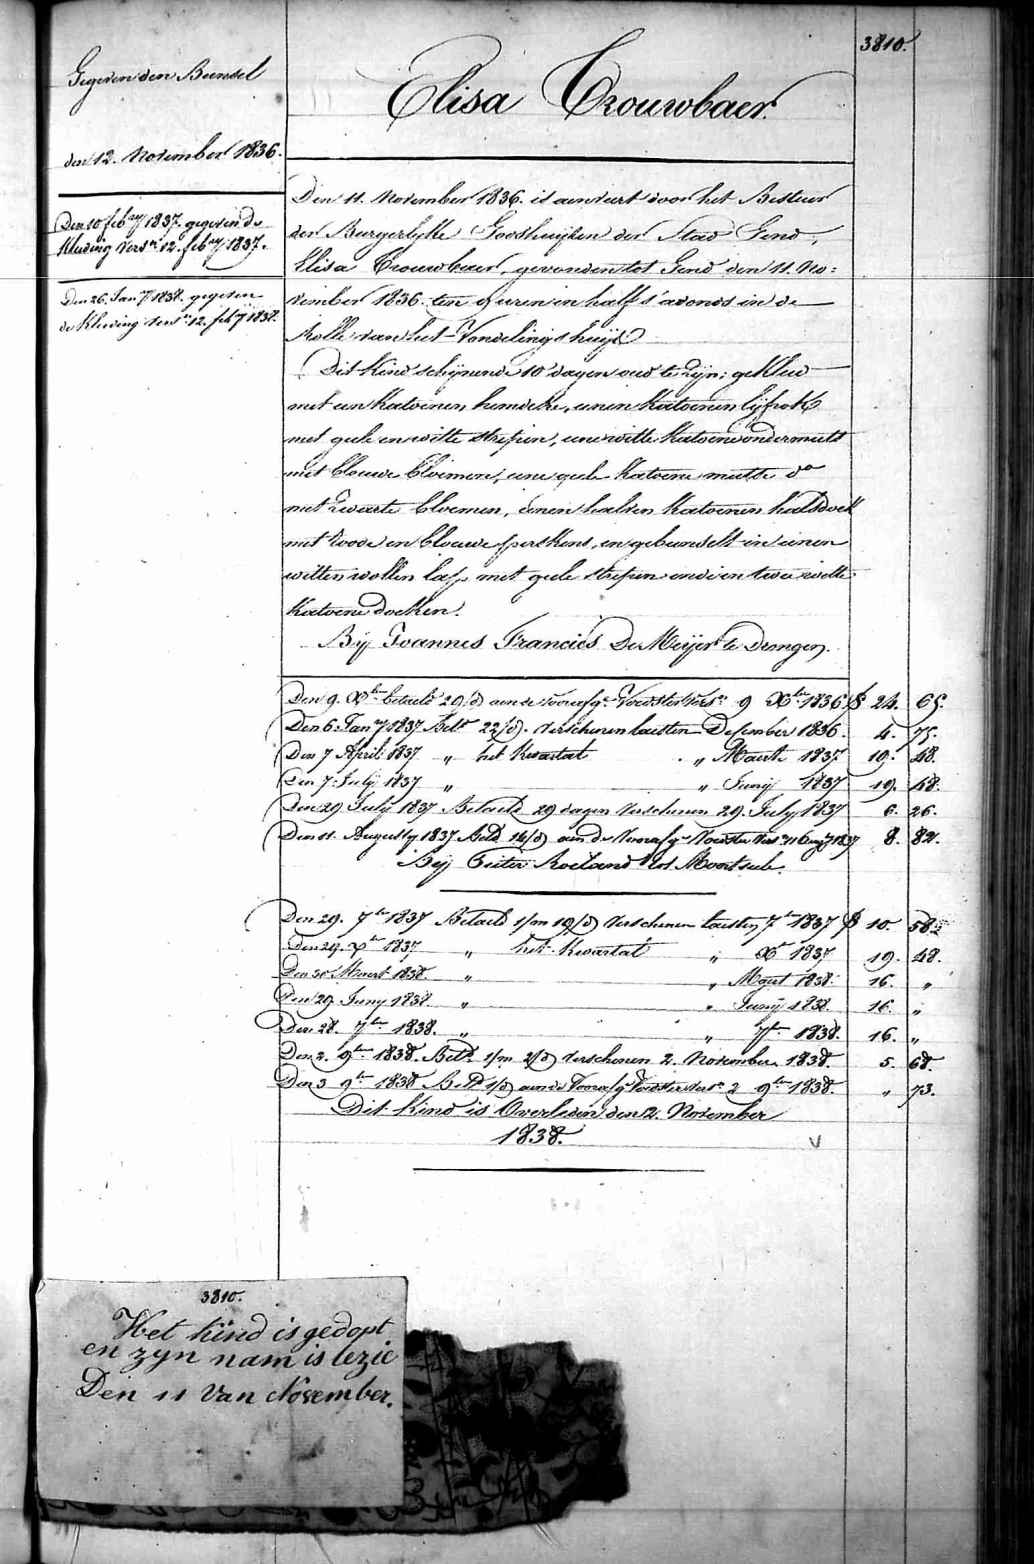 3810.
Elisa Trouwbaer.
Gegeven den Bunsel
den 12. November 1836.
Den 10 feb.ry 1837. gegeven de
kleeding vers.n 12. feb.ry 1837.
Den 26. Jan.ry 1838. gegeven
de kleeding vers.n 12. feb.y 1838.
Den 11. November 1836. is aenveirt door het Bestuer
der Burgerlyke Godshuijsen der Stad Gend,
Elisa Trouwbaer, gevonden tot Gend den 11. No:
vember 1836. ten 9 uren en half s'avonds in de
Rolle van het Vondelingshuijs
Dit kind schijnende 10 dagen oud te zijn; gekleed
met een katoenen hemdeke, eenen katoenen lijfrok
met geele en witte strepen, eene witte katoene ondermuts
met blouwe bloemen, eene geele katoene mutse d.o
met zwarte bloemen, eenen halven katoenen halsdoek
met roode en blouwe perskens, en gebunselt in eenen
witten wollen lap met geele strepen en in twee witte
katoene doeken.
Bij Joannes Francies De Meijer te Drongen.
Den 9. X.er betaeld 29/d aen de voorafg.e Voedster vers.n 9 X.er 1836 24. 65.
Den 6. Jan.ry 1837 Bet.d 22/d. verschenen laetsten December 1836. 4. 75.
Den 7 April 1837 „ het kwartal „ Maert 1837 19. 48.
Den 7. July 1837 „ „ Junij 1837 19. 48.
Den 29 July 1837 Betaeld 29 dagen verschenen 29. July 1837 6. 26.
Den 11. Augusty 1837 Bet.d 14/d aen de voorafg.e Voedster vers.n 11 Aug.y 1837 8. 82.
Bij Pieter Roeland tot Moortsele.
Den 29. 7.er 1837 Betaeld 1/m 19/d verschenen laetsten 7.er 1837 10. 58.
Den 29. X.er 1837 „ het kwartal „ X.r 1837 19. 48.
Den 30 Maert 1838. „ „ Maert 1838. 16. „
Den 29 Juny 1838 „ „ Junij 1838. 16. „
Den 28. 7.er 1838. „ „ 7.er 1838. 16. „
Den 2. 9.er 1838. Bet.d 1/m 2/d verschenen 2. November 1838. 5. 68.
Den 3 9.er 1838 Bet.d 1/d aen de Voorafg.e Voedster vers.n 2 9.er 1838. „ 73.
Dit kind is Overleden den 2. November
1838.
3810.
Het kind is gedopt
en zyn nam is lezie
Den 11 Van November.